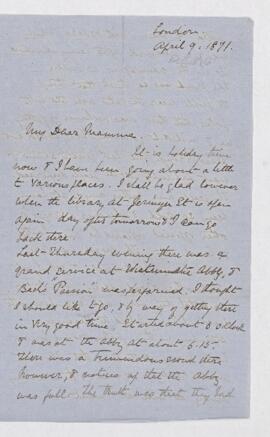 London
April 9, 1871.
My Dear Mamma
It is holiday time
now & I have been going about a little
to various places. I shall be glad however
when the library at Jermyn St is open
again day after tomorrow & I can go
back there.
Last Thursday evening there was a
grand service at Westminster Abby, &
Bach's Passion was performed. I thought
I should like to go, & by way of getting there
in very good time, started about 5 o'clock
& was at the abby at about 5.15-
There was a tremendous crowd there
however, & notices up that the Abby
was full. The truth was that they had